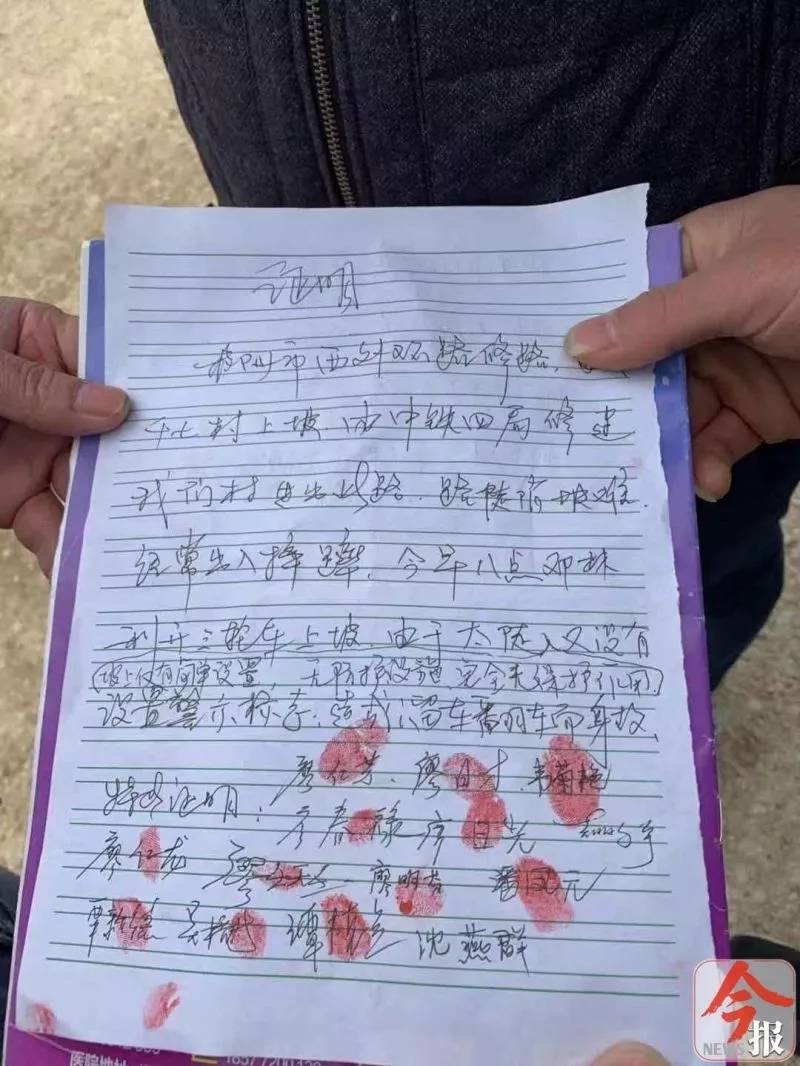 证明
柳州市西外环路修路,
十七村上坡.由中铁四局修建
我们村进出此路.路陡滑坡难.
经常出入摔跤,今早八点邓林
利开三轮车上坡,由于太陡又没有
坡上仅有简单设置,无防护设施,完全无保护作用
设置警示标志.造成溜车翻车而身故.
特此证明: 廖仁芳.廖日才.韦菊艳
廖春禄 廖日光
廖仁龙 廖明芳 潘凤元
覃新德 吴 谭 沈燕群
医院地址
今报
NEWS